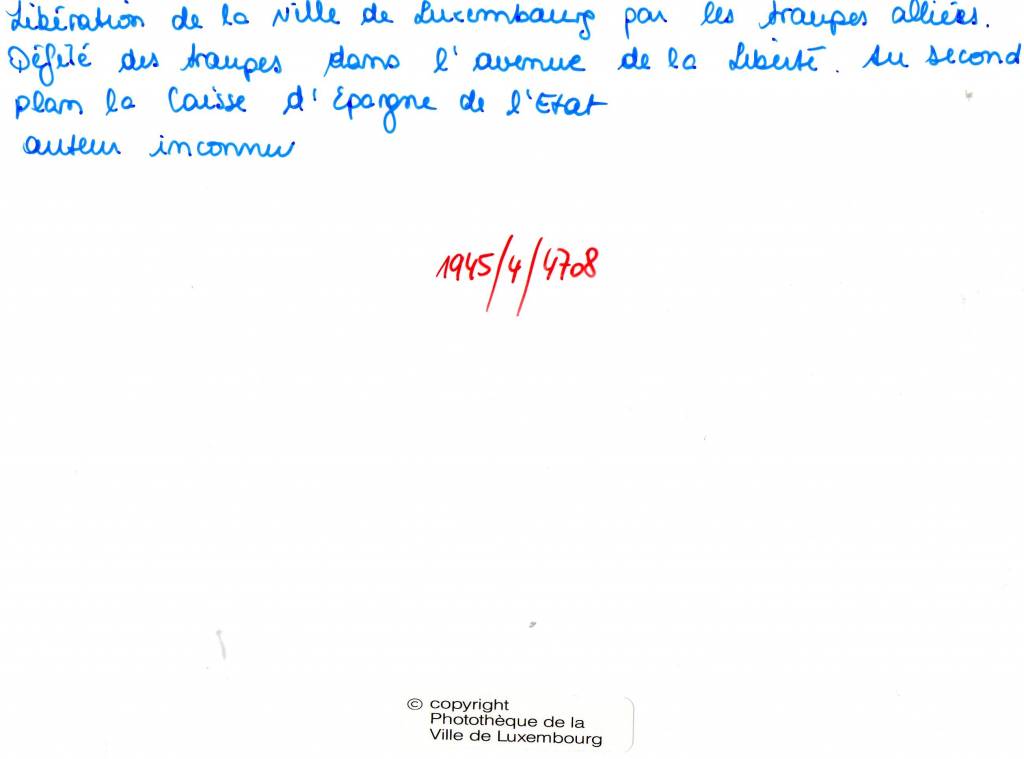 Libération de la Ville de Luxembourg par les troupes alliées.
Défilé des troupes dans l'avenue de la Liberté. Au second
plan la Caisse d'Epargne de l'Etat
auteur inconnu
1945/4/4708
© copyright
Photothèque de la
Ville de Luxembourg